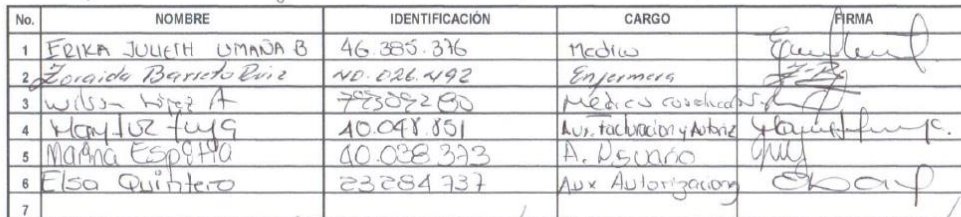 No. NOMBRE IDENTIFICACIÓN CARGO FIRMA
1 ERIKA JULIETH UMAÑA B 46.385.376 Medico
2 Zoraida Barreto Ruiz 40.026.492 Enfermera
3 Wilson López A Médico
4 40.048.851 Aux. facturacion y Autoriz
5 Marina Espitia 40.038.373 A. Usuario
6 Elsa Quintero 23284737 Aux Autorizacion
7